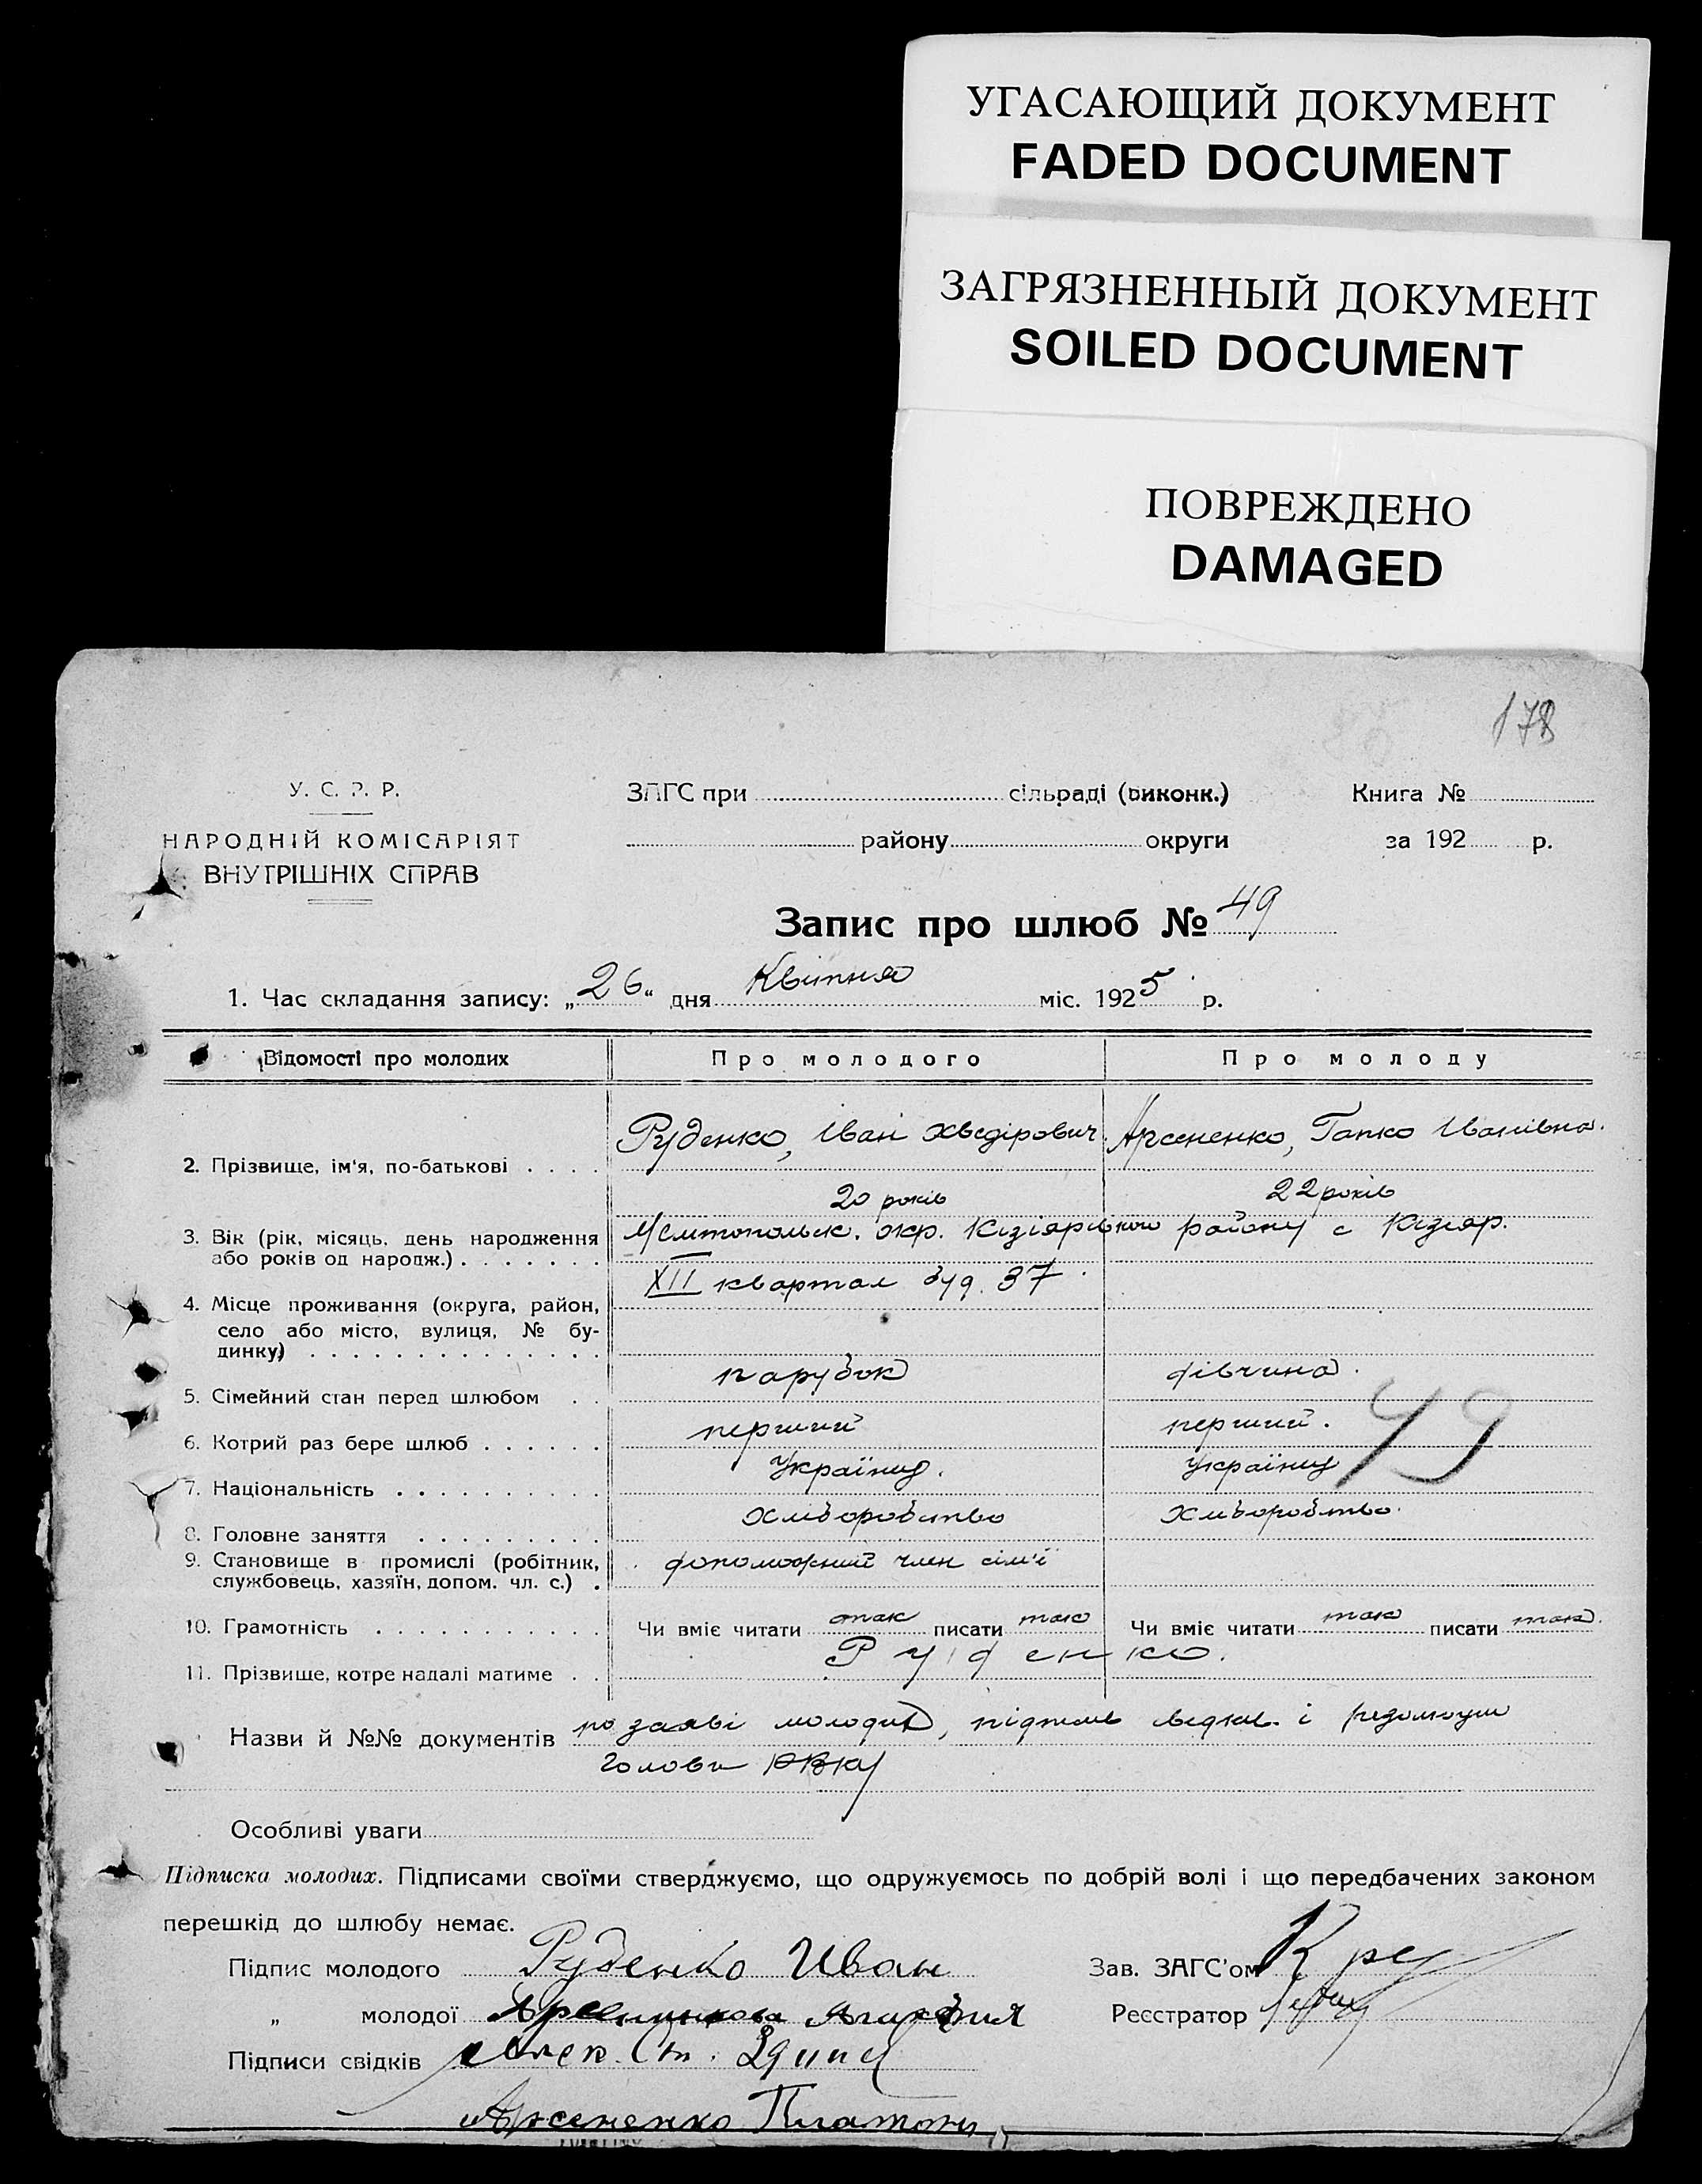 УГАСАЮЩИЙ ДОКУМЕНТ
FADED DOCUMENT
ЗАГРЯЗНЕННЫЙ ДОКУМЕНТ
SOILED DOCUMENT
ПОВРЕЖДЕНО
DAMAGED
178
У. С. Р. Р.
НАРОДНІЙ КОМІСАРІЯТ
ВНУТРІШНІХ СПРАВ
ЗАГС при сільраді (виконк.)
району округи
Книга №
за 192 р.
Запис про шлюб № 49
1. Час складання запису: „26“ дня Квітня міс. 1925 р.
Відомості про молодих Про молодого Про молоду
2. Прізвище, ім'я, по-батькові . . . . Руденко, Іван Хведірович Арсененко, Гапко Іванівна.
20 років 22 років
3. Вік (рік, місяць, день народження
або років од народж.) . . . . . . .
Мелитопольск. окр. Кізіярівського району с Кізіяр.
XII квартал буд. 37
4. Місце проживання (округа, район,
село або місто, вулиця, № бу-
динку) . . . . . . . . . . . . . .
5. Сімейний стан перед шлюбом . . парубок дівчина.
6. Котрий раз бере шлюб . . . . . . перший перший.
49
7. Національність . . . . . . . . . . Українец. Українец
8. Головне заняття . . . . . . . . . Хліборобство Хліборобство.
9. Становище в промислі (робітник,
службовець, хазяїн, допом. чл. с.) . допоможний член сім'ї
10. Грамотність . . . . . . . . . . . Чи вміє читати так писати так Чи вміє читати так писати так.
11. Прізвище, котре надалі матиме . . Руденко.
Назви й №№ документів по заяві молодих, підпис свідків і резолюции
голови РВКу
Особливі уваги
Підписка молодих. Підписами своїми стверджуємо, що одружуємось по добрій волі і що передбачених законом
перешкід до шлюбу немає.
Підпис молодого Руденко Иван
Зав. ЗАГС'ом
„ молодої
Реєстратор
Підписи свідків
Арсененко Платон